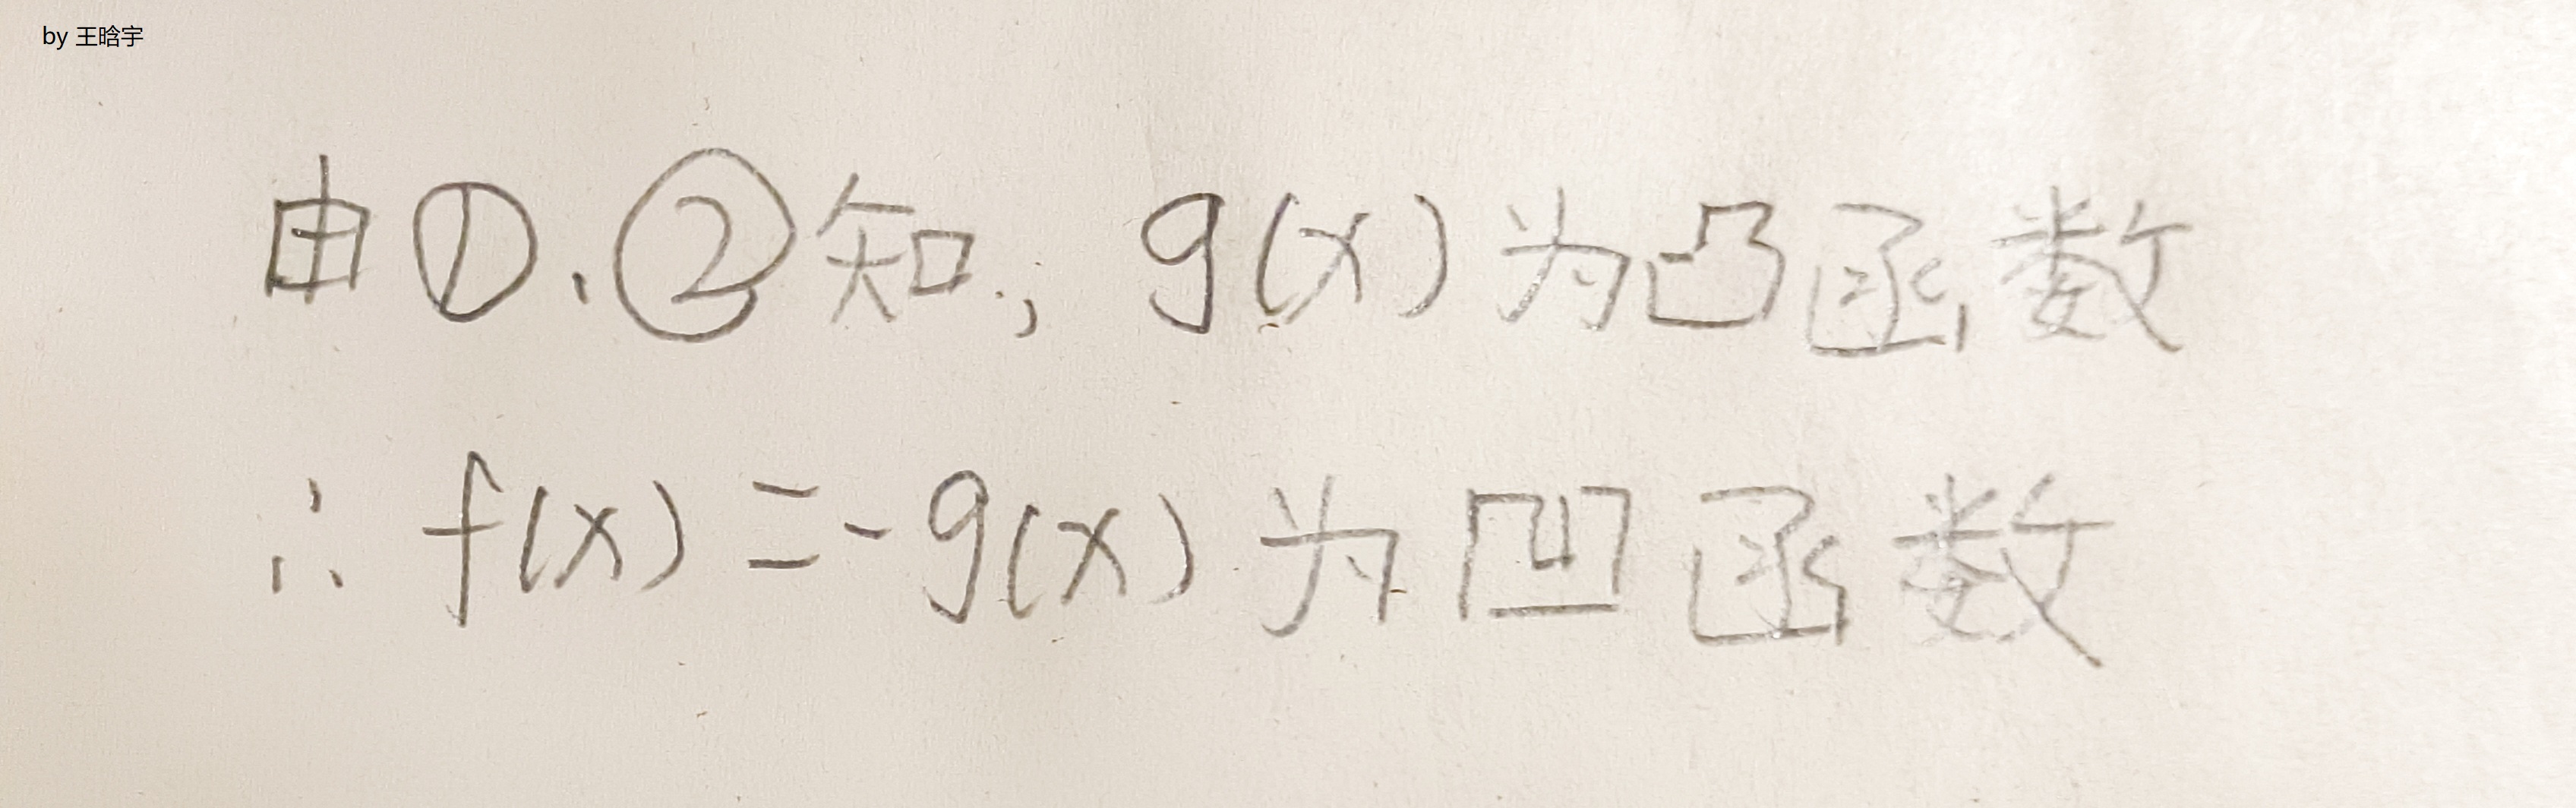 by 王晗宇
由①、②知, g(x)为凸函数
∴ f(x)=-g(x)为凹函数